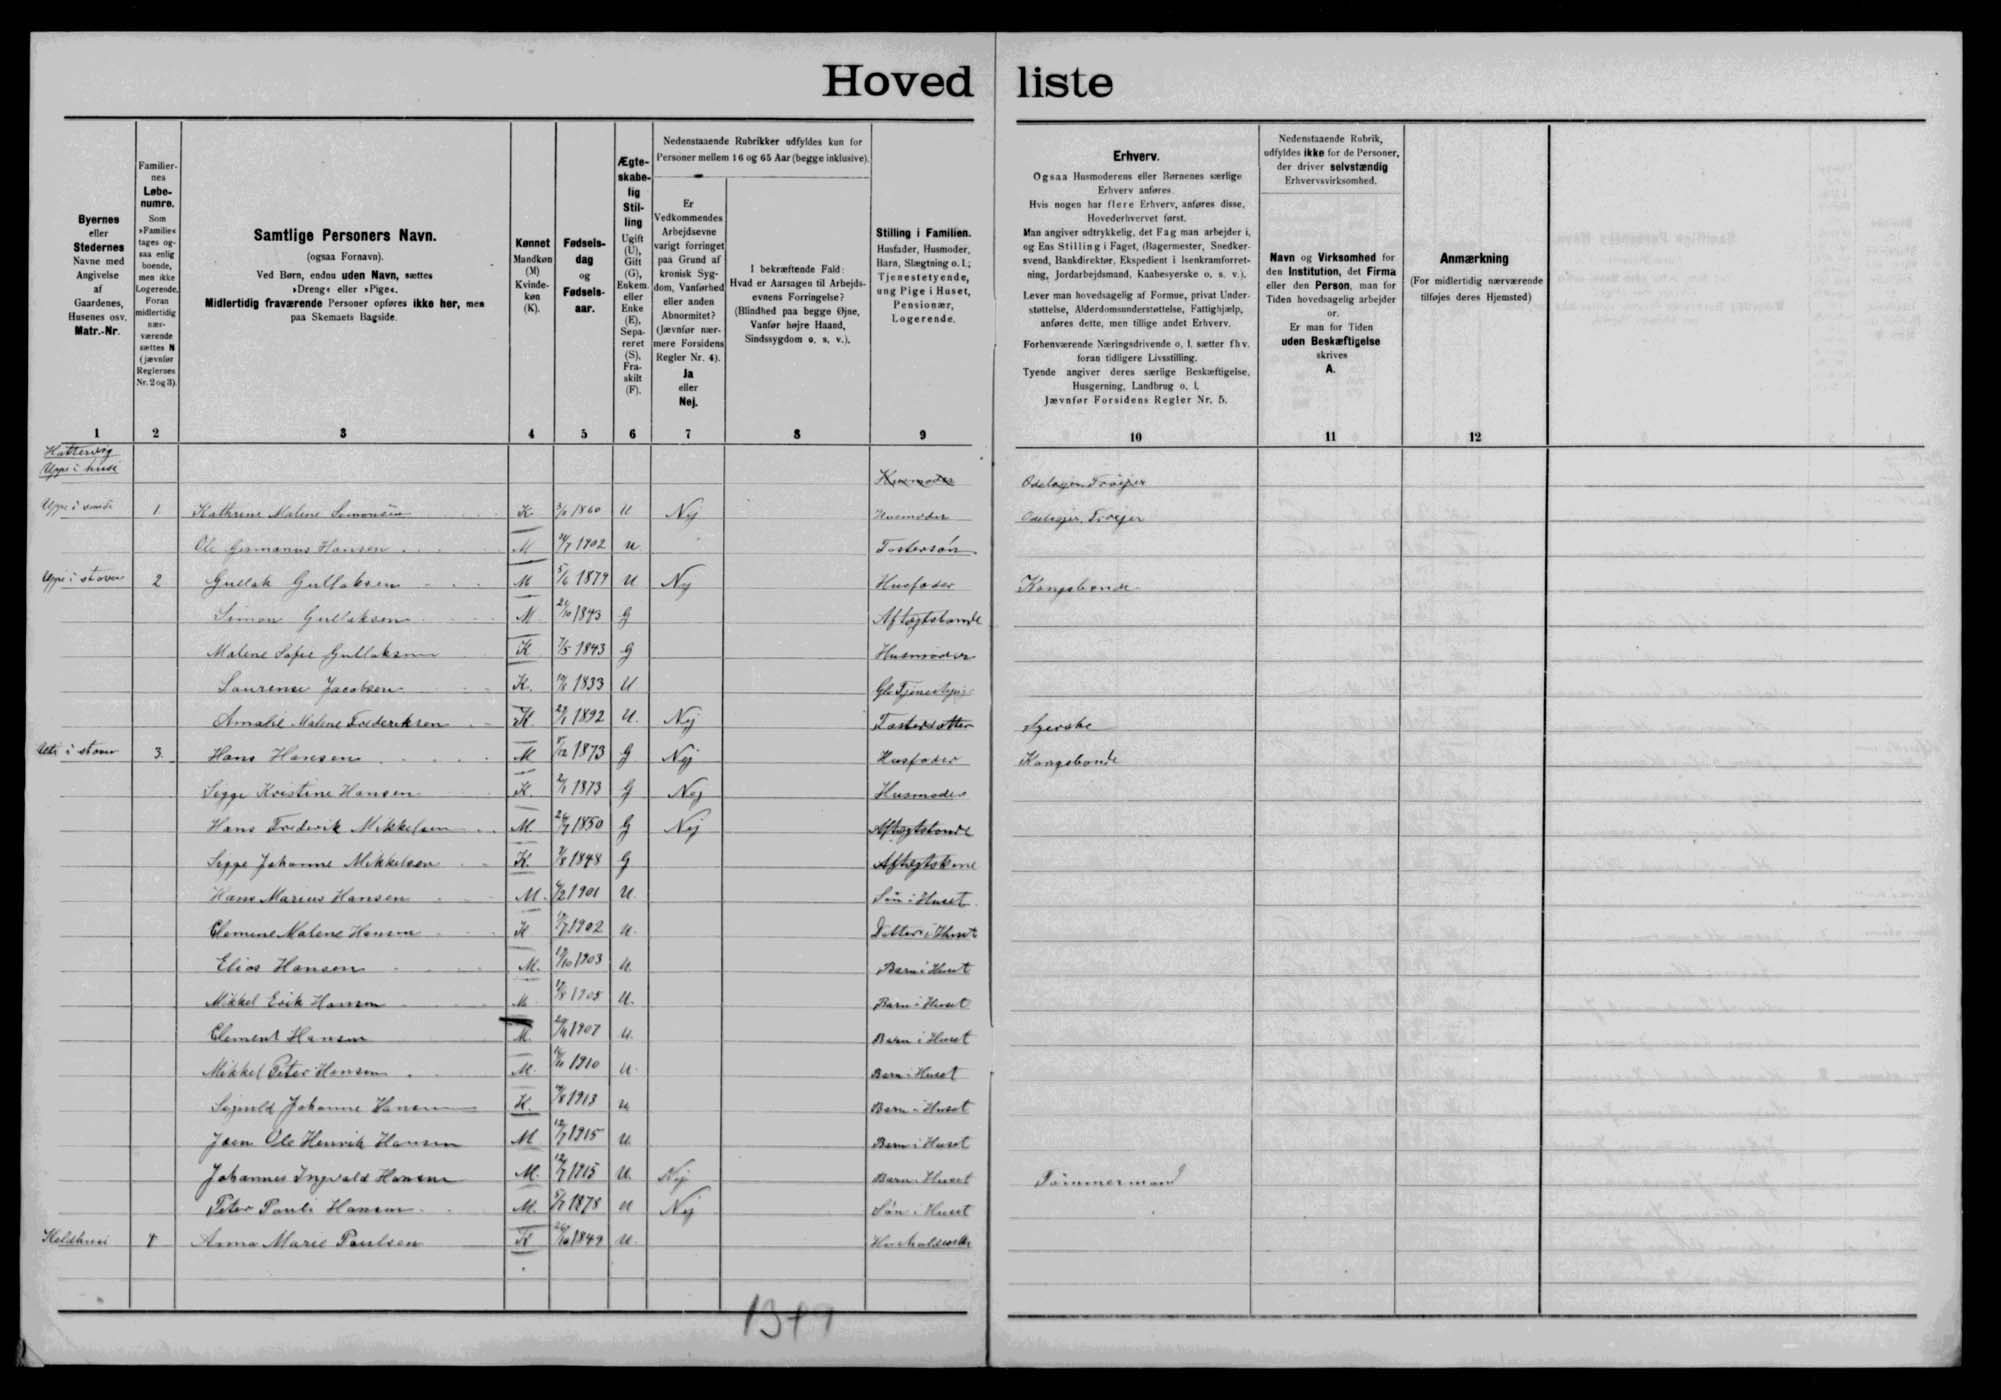 Hovedliste
Byernes
eller
Stedernes
Navne med
Angivelse
af
Gaardenes,
Husenes osv.
Matr.-Nr.
Familier-
nes
Løbe-
numre.
Som
»Familie«
tages og-
saa enlig
boende,
men ikke
Logerende.
Foran
midlertidig
nær-
værende
sættes N
(jævnfør
Reglernes
Nr. 2 og 3).
Samtlige Personers Navn.
(ogsaa Fornavn).
Ved Børn, endnu uden Navn, sættes
»Dreng« eller »Pige«.
Midlertidig fraværende Personer opføres ikke her, men
paa Skemaets Bagside.
Kønnet
Mandkøn
(M)
Kvinde-
køn
(K).
Fødsels-
dag
og
Fødsels-
aar.
Ægte-
skabe-
lig
Stil-
ling
Ugift
(U),
Gift
(G),
Enkem.
eller
Enke
(E),
Sepa-
reret
(S),
Fra-
skilt
(F).
Nedenstaaende Rubrikker udfyldes kun for
Personer mellem 16 og 65 Aar (begge inklusive).
Er
Vedkommendes
Arbejdsevne
varigt forringet
paa Grund af
kronisk Syg-
dom, Vanførhed
eller anden
Abnormitet?
(Jævnfør nær-
mere Forsidens
Regler Nr. 4).
Ja
eller
Nej.
I bekræftende Fald:
Hvad er Aarsagen til Arbejds-
evnens Forringelse?
(Blindhed paa begge Øjne,
Vanfør højre Haand,
Sindssygdom o. s. v.).
Stilling i Familien.
Husfader, Husmoder,
Barn, Slægtning o. l.;
Tjenestetyende,
ung Pige i Huset,
Pensionær,
Logerende.
Erhverv.
Ogsaa Husmoderens eller Børnenes særlige
Erhverv anføres.
Hvis nogen har flere Erhverv, anføres disse,
Hovederhvervet først.
Man angiver udtrykkelig, det Fag man arbejder i,
og Ens Stilling i Faget, (Bagermester, Snedker-
svend, Bankdirektør, Ekspedient i Isenkramforret-
ning, Jordarbejdsmand, Kaabesyerske o. s. v.).
Lever man hovedsagelig af Formue, privat Under-
støttelse, Alderdomsunderstøttelse, Fattighjælp,
anføres dette, men tillige andet Erhverv.
Forhenværende Næringsdrivende o. l. sætter fhv.
foran tidligere Livsstilling.
Tyende angiver deres særlige Beskæftigelse,
Husgerning, Landbrug o. l.
Jævnfør Forsidens Regler Nr. 5.
Nedenstaaende Rubrik,
udfyldes ikke for de Personer,
der driver selvstændig
Erhvervsvirksomhed.
Navn og Virksomhed for
den Institution, det Firma
eller den Person, man for
Tiden hovedsagelig arbejder
for.
Er man for Tiden
uden Beskæftigelse
skrives
A.
Anmærkning
(For midlertidig nærværende
tilføjes deres Hjemsted)
1 2 3 4 5 6 7 8 9 10 11 12
Hattervig
Uppi i husi Husmoder
1 Kathrine Malene Simonsen K 1860 U Nej Husmoder
Ole Germanus Hansen M 1902 U Søstersøn
Uppi i stova 2 Gullak Gullaksen M 1879 U Nej Husfader Kongsbonde
Simon Gullaksen M 1843 G Aftægtsbonde
Malene Sofie Gullaksen K 1843 G Husmoder
Laurense Jacobsen K. 1833 U
Amalie Malene Frederiksen K. 1892 U. Nej Søsterdatter Syerske
i stova 3. Hans Hansen M 1873 G Nej Husfader Kongsbonde
Sigge Kristine Hansen K. 1873 G Nej Husmoder
Hans Frederik Mikkelsen M. 1850 G Nej Aftægtsbonde
Sigge Johanne Mikkelsen K. 1848 G Aftægtskone
Hans Marius Hansen M. 1901 U. Søn i Huset
Clemene Malene Hansen K 1902 U. Datter i Huset
Elias Hansen M. 1903 U. Barn i Huset
Mikkel Erik Hansen M 1905 U. Barn i Huset
Clement Hansen M. 1907 U. Barn i Huset
Mikkel Peter Hansen M. 1910 U. Barn i Huset
Johanne Hansen K. 1913 U Barn i Huset
Ole Henrik Hansen M 1915 U. Barn i Huset
Johannes Ingvald Hansen M. 1915 U. Nej Barn i Huset Tømmermand
Peter Pauli Hansen M. 1878 U Nej Søn i Huset
4 Anna Marie Poulsen K 1849 U.